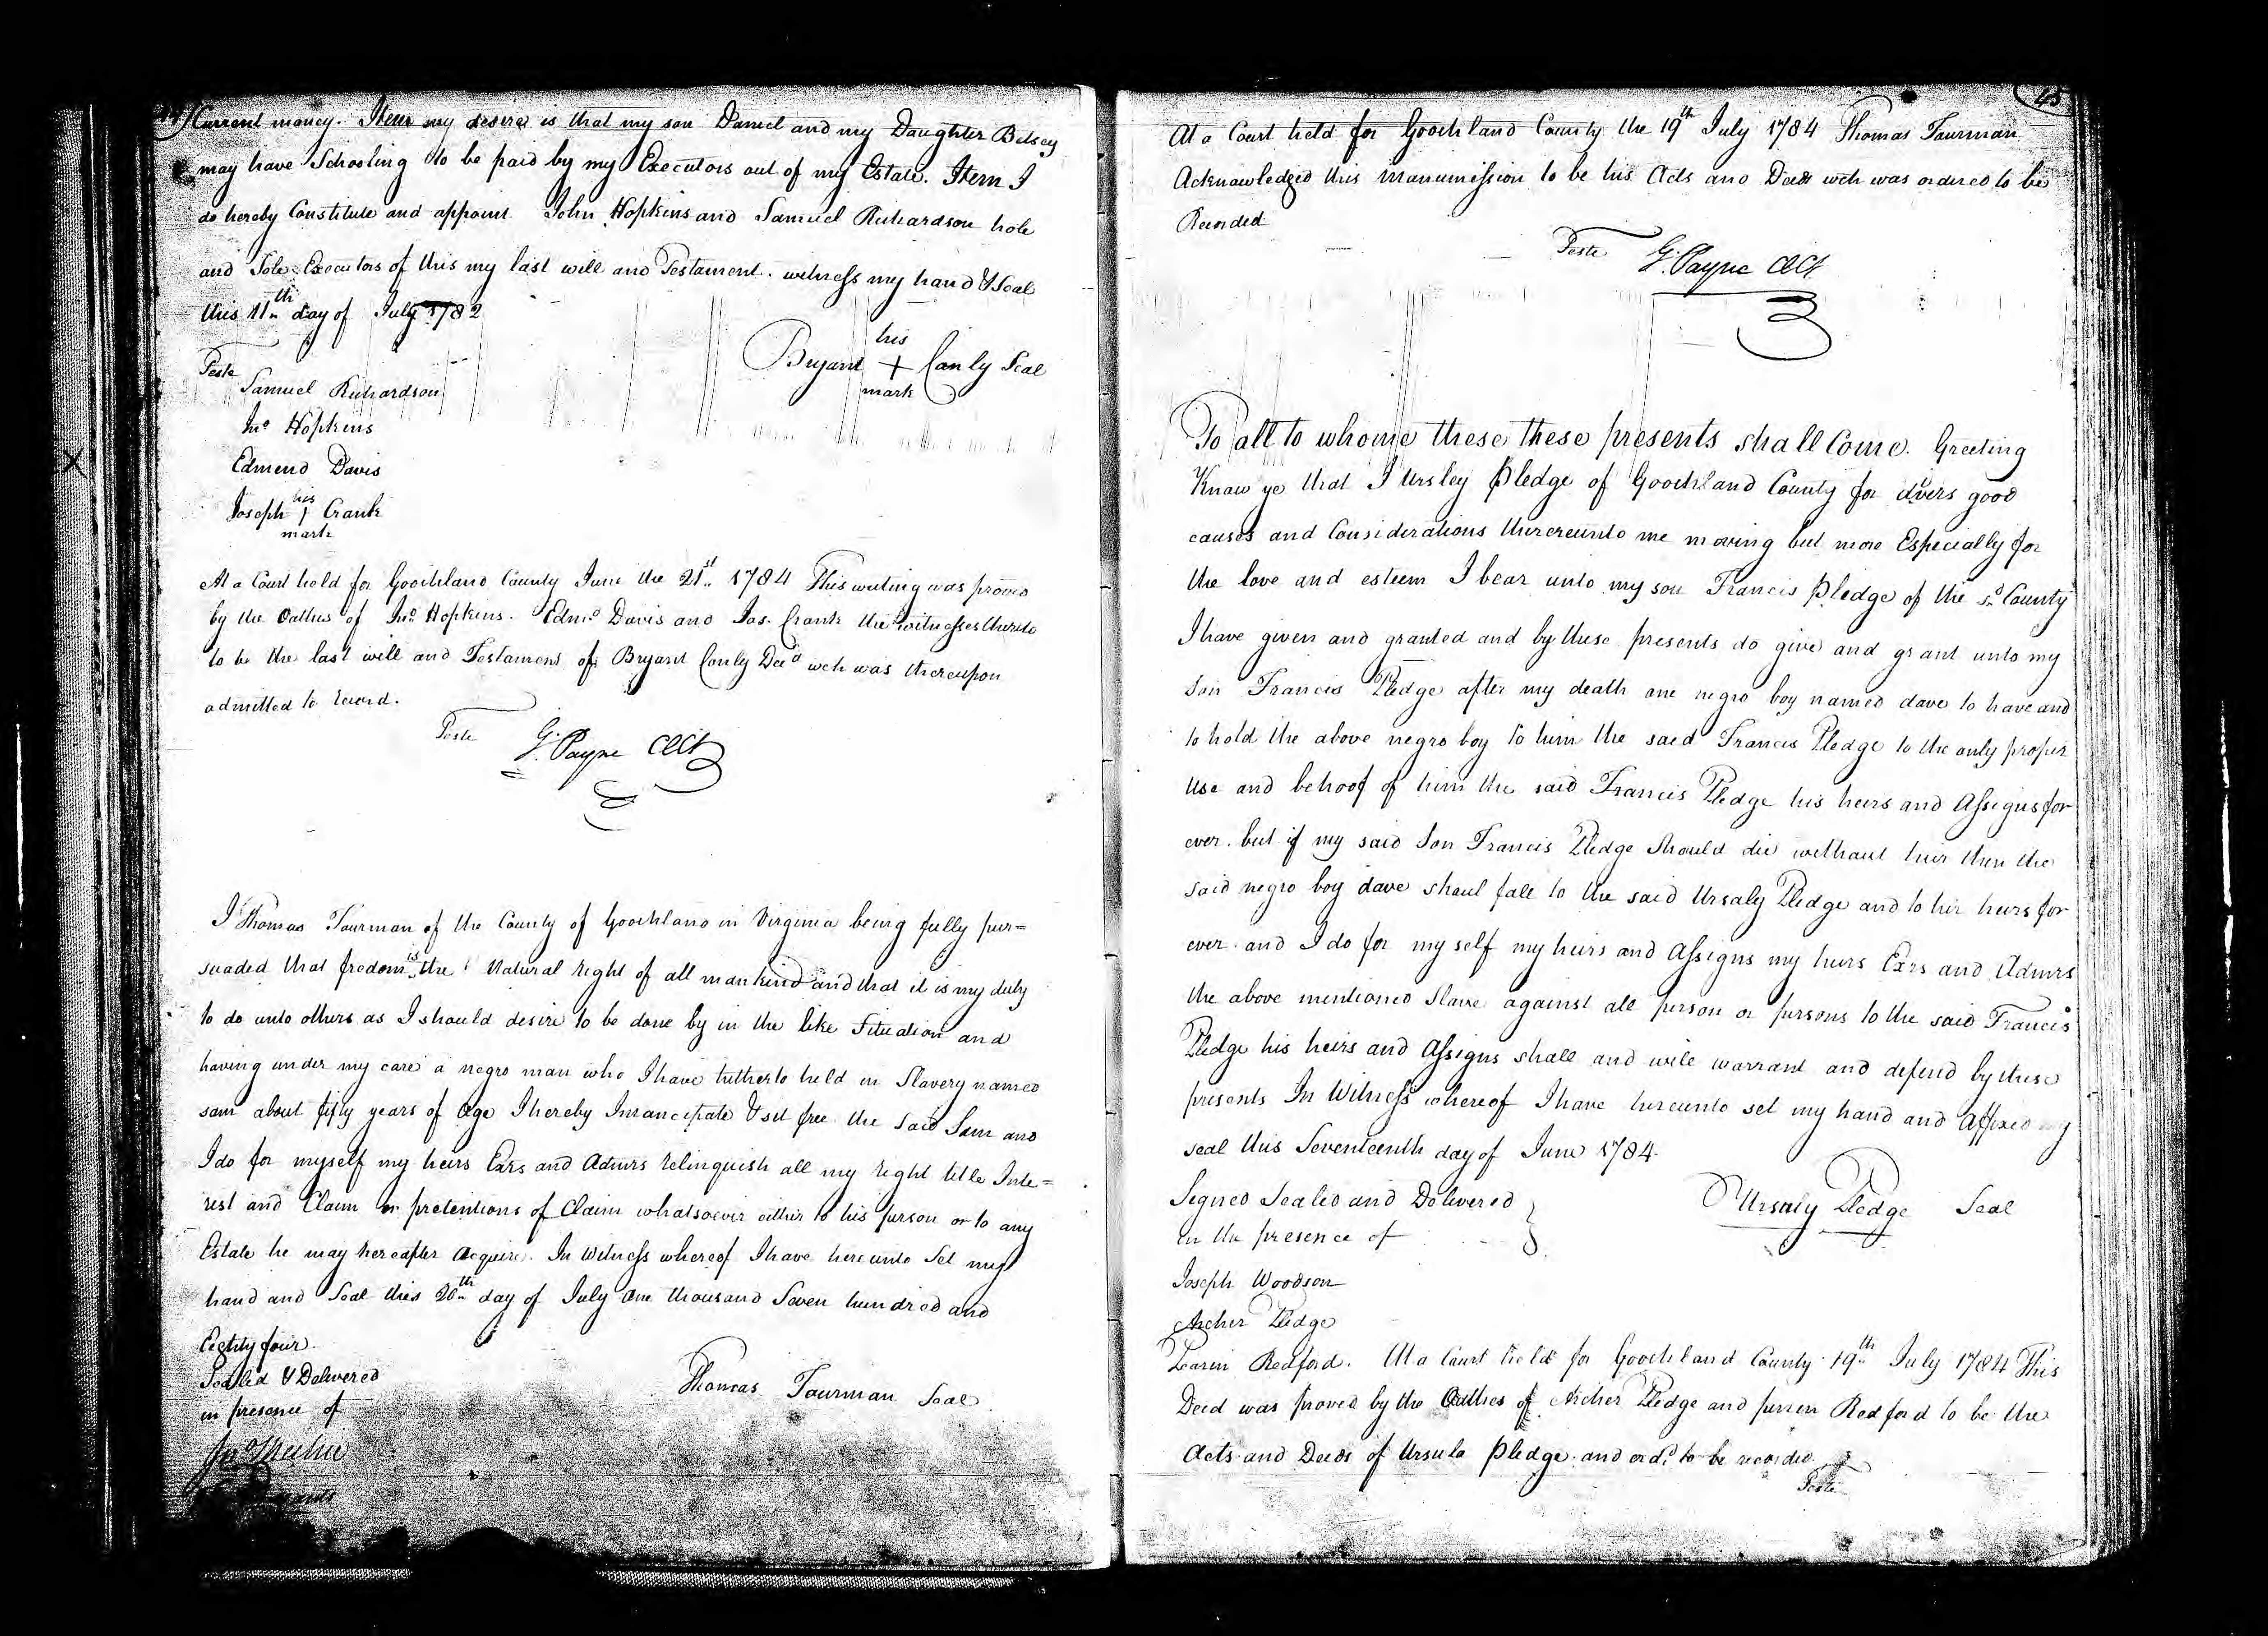 44 Current money. Item my desire is that my son Daniel and my Daughter Betsey
may have Schooling to be paid by my Executors out of my Estate. Item I
do hereby Constitute and appoint John Hopkins and Samuel Richardson hole
and Sole Executors of this my last will and Testament. witness my hand & Seal
this 11th day of July 1782
his
Bryant + Conly Seal
mark
Teste
Samuel Richardson
Jno Hopkins
Edmend Davis
his
Joseph 1 Crank
mark
At a Court held for Goochland County June the 21st 1784 This writing was proved
by the Oathes of Jno Hopkins. Edmd Davis and Jos. Crank the witnesses thereto
to be the last will and Testament of Bryant Conly Decd wch was thereupon
admitted to record.
Teste G. Payne ClCt
I Thomas Tourman of the County of Goochland in Virginia being fully pur=
suaded that fredom is the Natural right of all mankind and that it is my duty
to do unto others as I should desire to be done by in the like Situation and
having under my care a negro man who I have hitherto held in Slavery named
sam about fifty years of age I hereby Imancipate & set free the said Sam and
I do for myself my heirs Exrs and Admrs relinquish all my right title Inte=
rest and Claim or pretentions of Claim whatsoever either to his person or to any
Estate he may hereafter acquire. In Witness whereof I have hereunto Set my
hand and Seal this 20th day of July One thousand Seven hundred and
Eighty four.
Sealed & Delivered
in presence of
Thomas Tourman Seal
45
At a Court held for Goochland County the 19th July 1784 Thomas Tourman
Acknowledged this manumission to be his Acts and Deed wch was ordered to be
Recorded
Teste G. Payne ClCt
To all to whome these these presents shall Come. Greeting
Know ye that I Ursley Pledge of Goochland County for divers good
causes and Considerations thereunto me moving but more Especially for
the love and esteem I bear unto my son Francis Pledge of the sd County
I have given and granted and by these presents do give and grant unto my
Son Francis Pledge after my death one negro boy named dave to have and
to hold the above negro boy to him the said Francis Pledge to the only proper
use and behoof of him the said Francis Pledge his heirs and Assigns for
ever. but if my said Son Francis Pledge Should die without heir then the
said negro boy dave shaul fall to the said Ursaly Pledge and to her heirs for
ever. and I do for my self my heirs and Assigns my heirs Exrs and Admrs
the above mentioned Slave against all person or persons to the said Francis
Pledge his heirs and Assigns shall and will warrant and defend by these
presents In Witness whereof I have hereunto set my hand and Affixed my
seal this Seventeenth day of June 1784.
Signed Sealed and Delivered
in the presence of
Ursaly Pledge Seal
Joseph Woodson
Archer Pledge
Redford. At a Court held for Goochland County 19th July 1784 This
Deed was proved by the Oathes of Archer Pledge and Redford to be the
Acts and Deeds of Ursula Pledge and ordd to be recorded
Teste